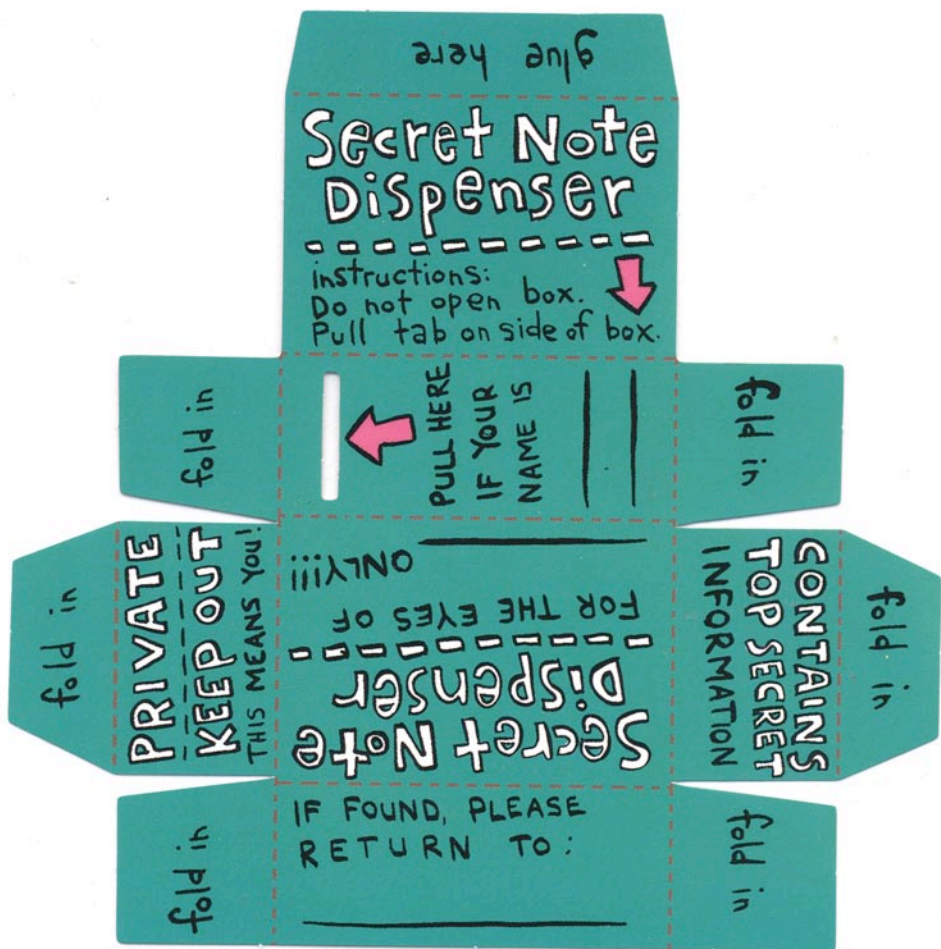 glue here
Secret Note
Dispenser
instructions:
Do not open box.
Pull tab on side of box.
fold in
PULL HERE
IF YOUR
NAME IS
fold in
fold in
PRIVATE
KEEP OUT
THIS MEANS YOU!
Secret Note
Dispenser
FOR THE EYES OF
ONLY!!!!
CONTAINS
TOP SECRET
INFORMATION
fold in
fold in
IF FOUND, PLEASE
RETURN TO:
fold in